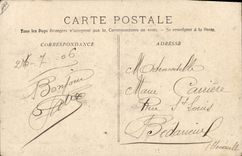 CARTE POSTALE
Tous les Pays étrangers n'acceptent pas la Correspondance au recto. - Se renseigner à la Poste.
CORRESPONDANCE
ADRESSE
26-7-06
Bonjour
Mademoiselle
Marie Carrière
Rue St Louis
Bédarieux
Hérault